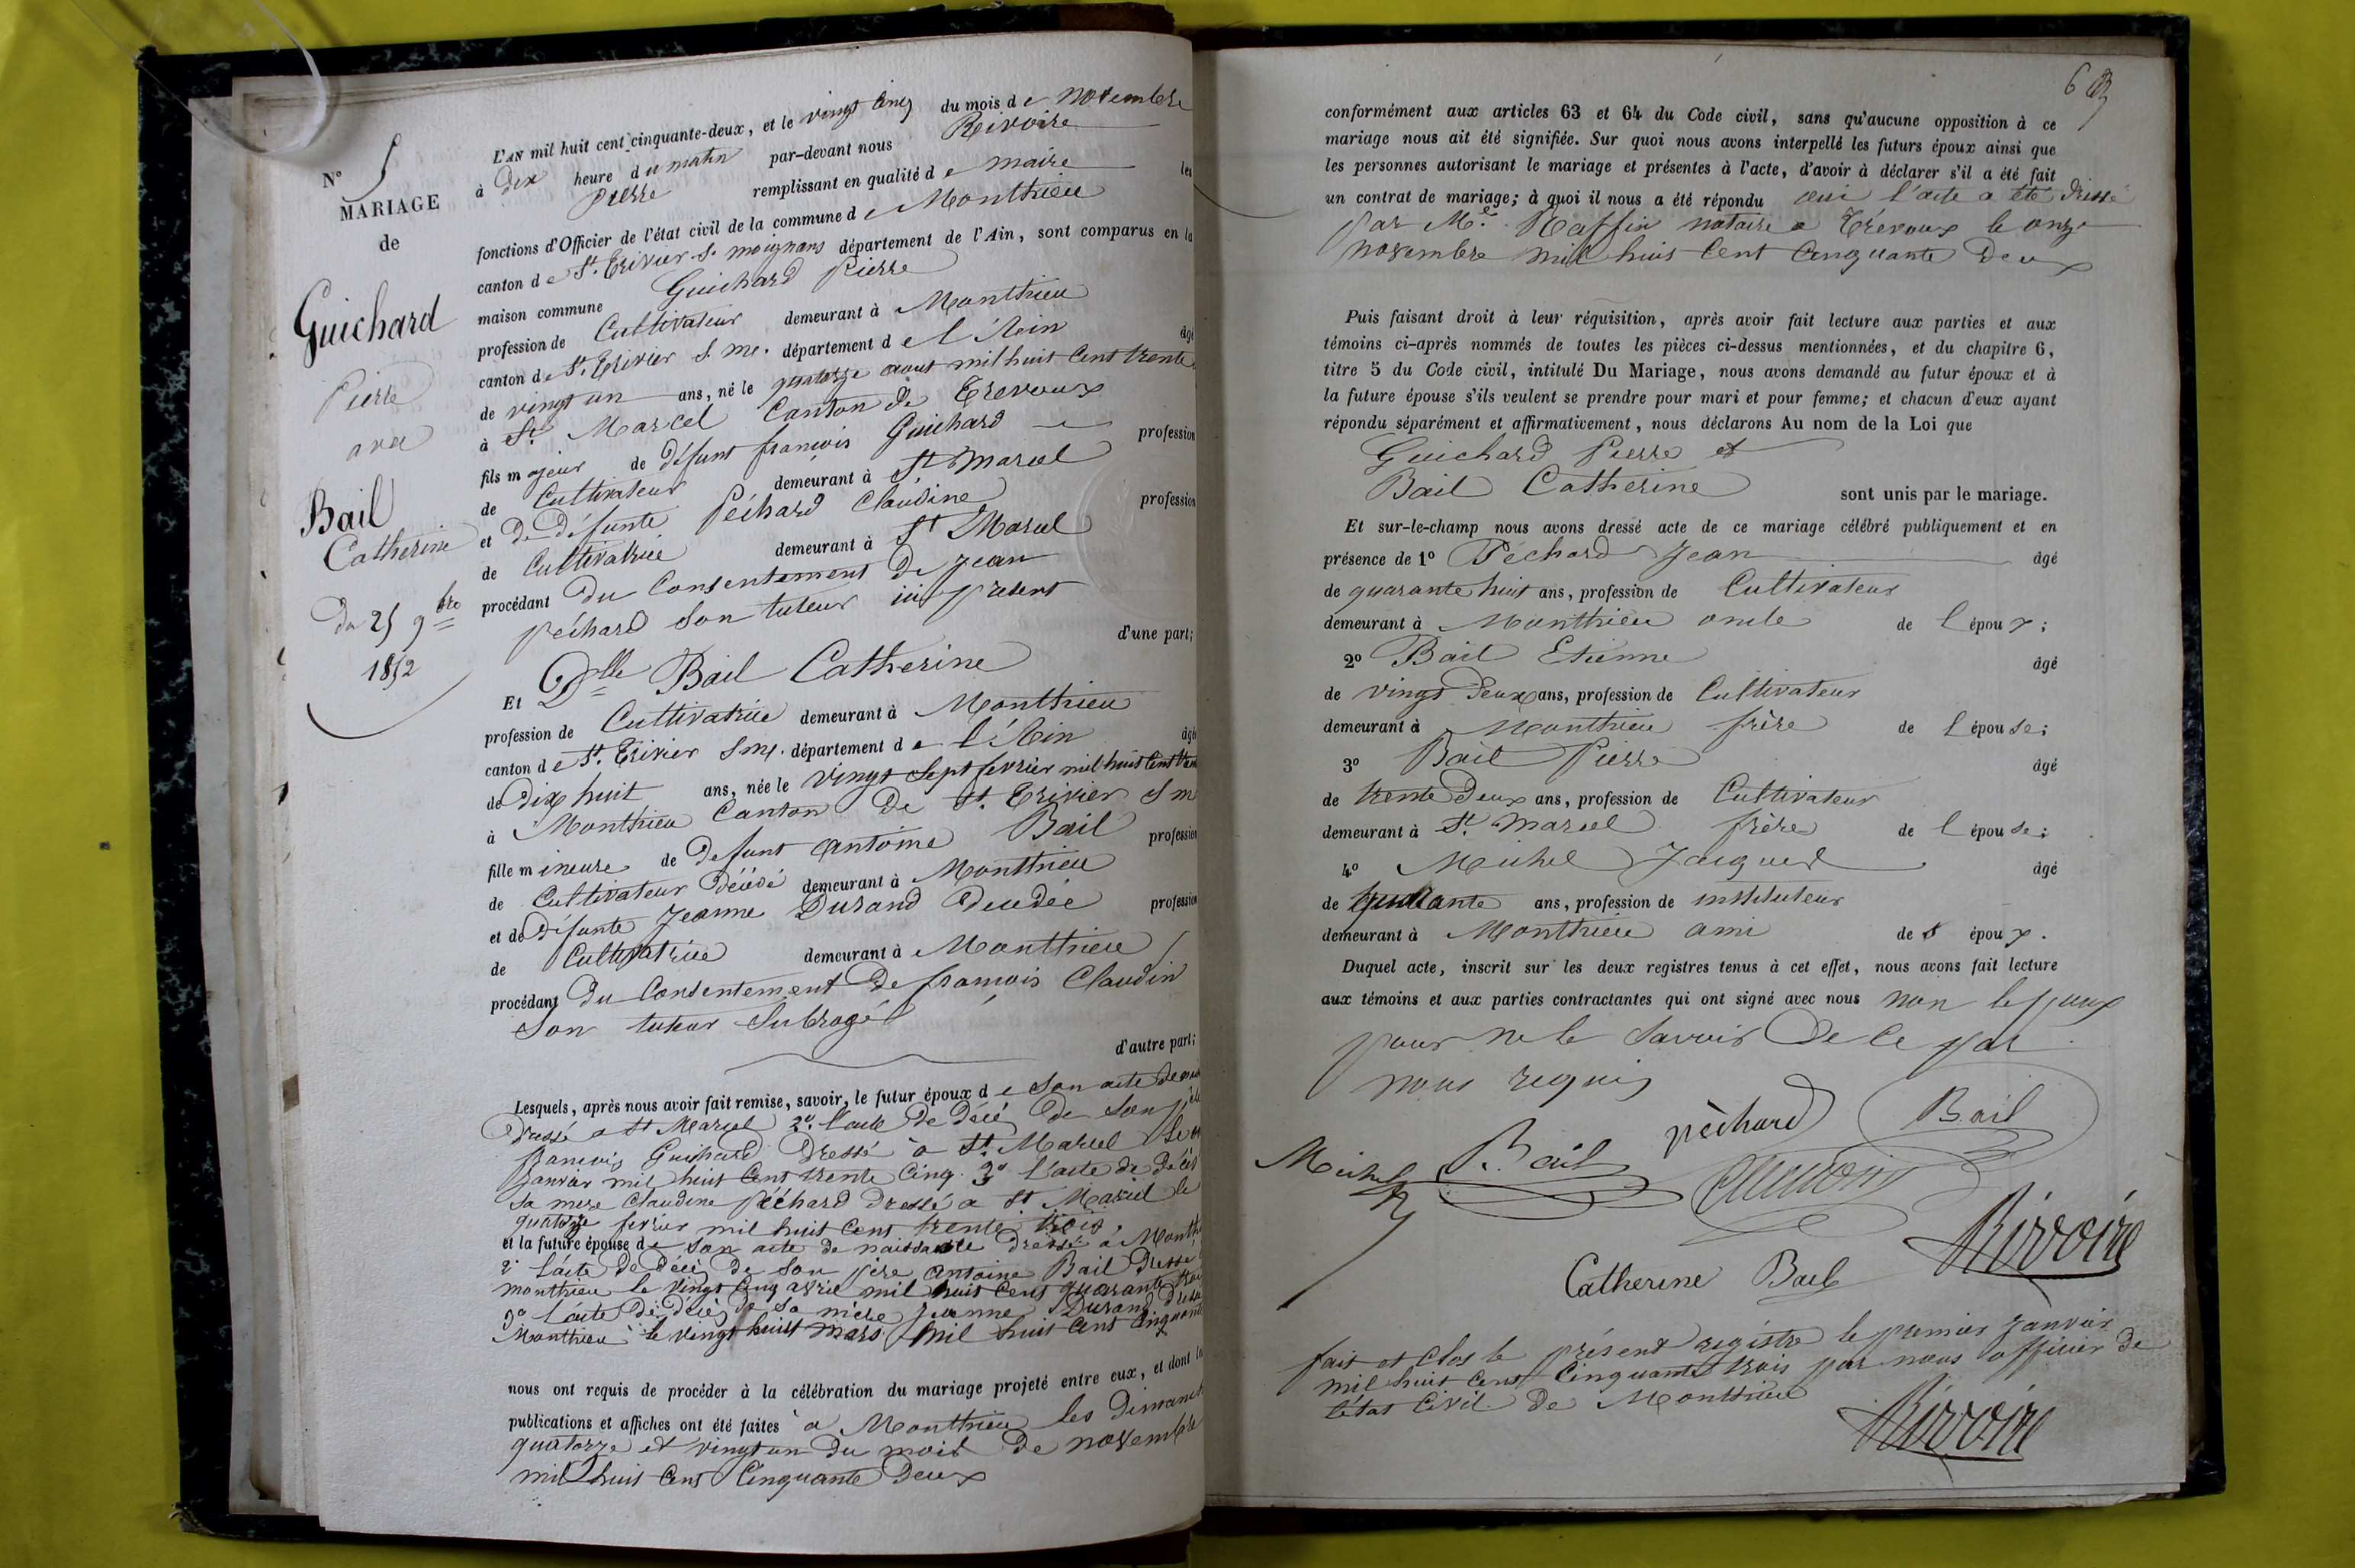 N° 5
MARIAGE
de
Guichard
Pierre
avec
Bail
Catherine
Du 25 9bre
1852
L'AN mil huit cent cinquante-deux, et le vingt cinq du mois de novembre
à Dix heure du matin par-devant nous Rivoire
Pierre remplissant en qualité de maire les
fonctions d'Officier de l'état civil de la commune de Monthieu
canton de St. Trivier S. moignans département de l'Ain, sont comparus en la
maison commune Guichard Pierre
profession de Cultivateur demeurant à Monthieu
canton de St. Trivier S. me. département de l'Ain âgé
de vingt un ans, né le quatorze aout mil huit cent trente
à St Marcel Canton de Trevoux
fils majeur de défunt francois Guichard profession
de Cultivateur demeurant à St Marcel
et de défunte Péchard Claudine profession
de Cultivatrice demeurant à St Marcel
procédant du Consentement de Jean
péchard son tuteur ici présent
d'une part;
Et Dlle Bail Catherine
profession de Cultivatrice demeurant à Monthieu
canton de St. Trivier S me. département de l'Ain âgé
de Dix huit ans, née le vingt sept fevrier mil huit Cent
à Monthieu Canton De St. Trivier S m
fille mineure de defunt Antoine Bail profession
de Cultivateur décédé demeurant à Monthieu
et de défunte Jeanne Durand décédée profession
de Cultivatrice demeurant à Monthieu
procédant du Consentement de francois Claudin
Son tuteur Subrogé
d'autre part;
Lesquels, après nous avoir fait remise, savoir, le futur époux de Son acte de
dressé a St Marcel 2° l'acte de décè de son père
francois Guichard dressé à St. Marcel le
Janvier mil huit Cent trente Cinq. 3° l'acte de décès
sa mere Claudine Péchard dressé a St Marcel le
quatorze fevrier mil huit Cent trente trois.
et la future épouse de son acte de naissance dressé à Month
2° l'acte de décè de son père antoine Bail dressé
monthieu le vingt Cinq avril mil huit Cent quarante trois
3° l'acte de décè de sa mère Jeanne Durand dressé
Monthieu le vingt huit mars mil huit Cent Cinquante
nous ont requis de procéder à la célébration du mariage projeté entre eux, et dont les
publications et affiches ont été faites à Monthieu les dimanch
quatorze et vingt un du mois de novembre
mil huit Cent Cinquante Deux
6
conformément aux articles 63 et 64 du Code civil, sans qu'aucune opposition à ce
mariage nous ait été signifiée. Sur quoi nous avons interpellé les futurs époux ainsi que
les personnes autorisant le mariage et présentes à l'acte, d'avoir à déclarer s'il a été fait
un contrat de mariage; à quoi il nous a été répondu oui l'acte a été dressé
par Me. Raffin notaire a Trévoux le onze
novembre mil huit Cent Cinquante Deux
Puis faisant droit à leur réquisition, après avoir fait lecture aux parties et aux
témoins ci-après nommés de toutes les pièces ci-dessus mentionnées, et du chapitre 6,
titre 5 du Code civil, intitulé Du Mariage, nous avons demandé au futur époux et à
la future épouse s'ils veulent se prendre pour mari et pour femme; et chacun d'eux ayant
répondu séparément et affirmativement, nous déclarons Au nom de la Loi que
Guichard Pierre et
Bail Catherine sont unis par le mariage.
Et sur-le-champ nous avons dressé acte de ce mariage célébré publiquement et en
présence de 1° Péchard Jean âgé
de quarante huit ans, profession de Cultivateur
demeurant à Monthieu oncle de l'époux;
2° Bail Etienne âgé
de vingt deux ans, profession de Cultivateur
demeurant à Monthieu frère de l'épouse;
3° Bail Pierre âgé
de trente Deux ans, profession de Cultivateur
demeurant à St. Marcel frère de l'épouse;
4° Michel Jacques âgé
de quarante ans, profession de instituteur
demeurant à Monthieu ami de époux.
Duquel acte, inscrit sur les deux registres tenus à cet effet, nous avons fait lecture
aux témoins et aux parties contractantes qui ont signé avec nous non lepoux
pour ne le savoir De Ce par
nous requis
péchard Bail
Michel Bail Claudin
Rivoire
Catherine Bail
fait et Clos le présent registre le premier Janvier
mil huit Cent Cinquante trois par nous officier de
l'état Civil de Monthieu
Rivoire